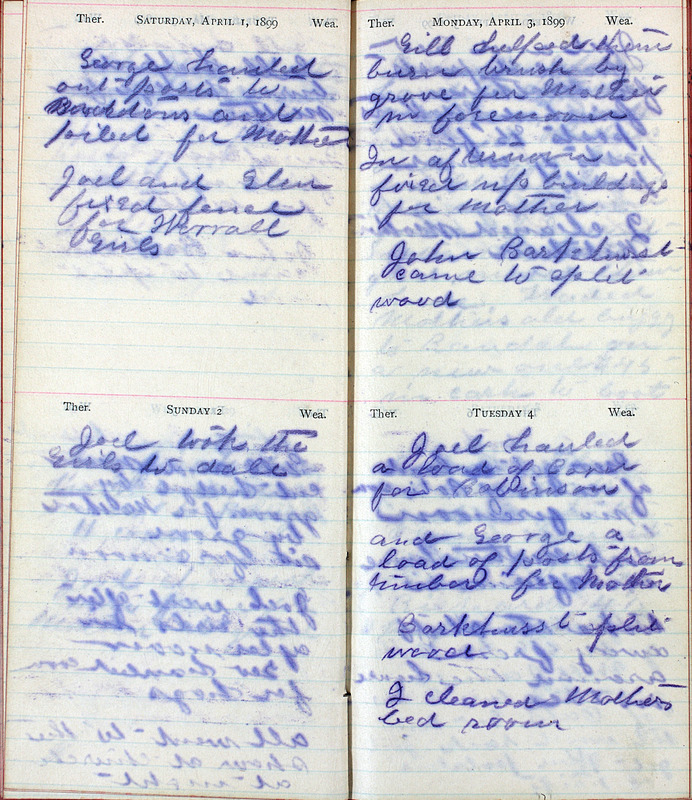 Ther. SATURDAY, APRIL 1, 1899 Wea.
George hauled
out posts to
and
piled for Mother
Joel and Glen
fixed fence
for Worrall
Girls
Ther. SUNDAY 2 Wea.
Joel took the
Girls to dale
Ther. MONDAY, APRIL 3, 1899 Wea.
Gill helped them
burn brush by
grove for Mother
in forenoon
In afternoon
fixed up buildings
for Mother
John Barkhurst
came to split
wood
Ther. TUESDAY 4 Wea.
Joel hauled
a load of
for
and George a
load of posts from
timber for Mother
Barkhurst split
wood
I cleaned Mothers
bed room